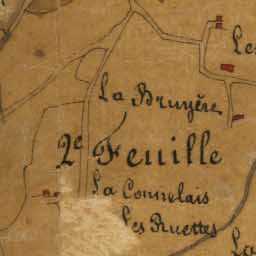 Les
La Bruyère
2e Feuille
La Connelais
Les Ruettes
La